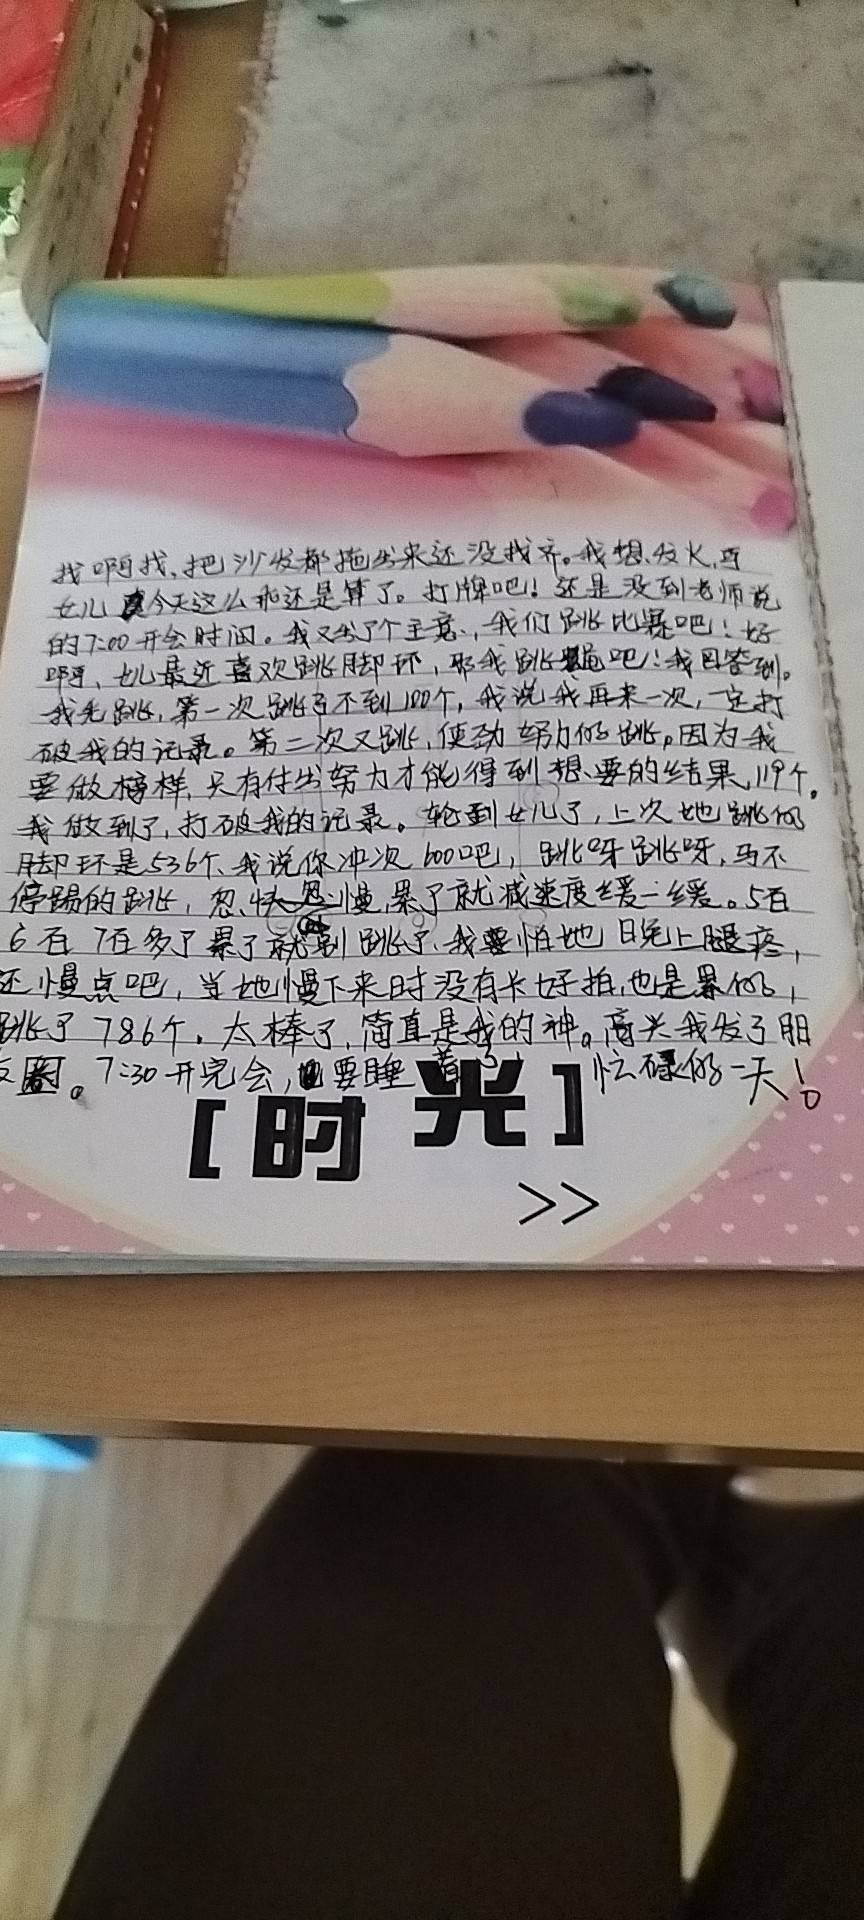 找啊找、把沙发都拖出来还没找齐。我想发火,可
女儿今天这么乖还是算了。打牌吧!还是没到老师说
的7:00开会时间。我又出了个主意,我们跳比赛吧!好
啊、女儿最近喜欢跳脚环,那我跳绳吧!我回答到。
我先跳,第一次跳了不到100个,我说我再来一次,一定打
破我的记录。第二次又跳,使劲努力的跳。因为我
要做榜样,只有付出努力才能得到想要的结果,119个。
我做到了,打破我的记录。轮到女儿了,上次她跳的
脚环是536个、我说你冲次600吧,跳呀跳呀,马不
停蹄的跳,忽快忽慢,累了就减速度缓一缓。5百
6百7百多了累了就别跳了、我怕她晚上腿疼,
还慢点吧,当她慢下来时没有卡好拍,也是累的,
跳了786个。太棒了,简直是我的神。高兴我发了朋
友圈。7:30开完会,要睡着了,忙碌的一天!
[时光]
>>